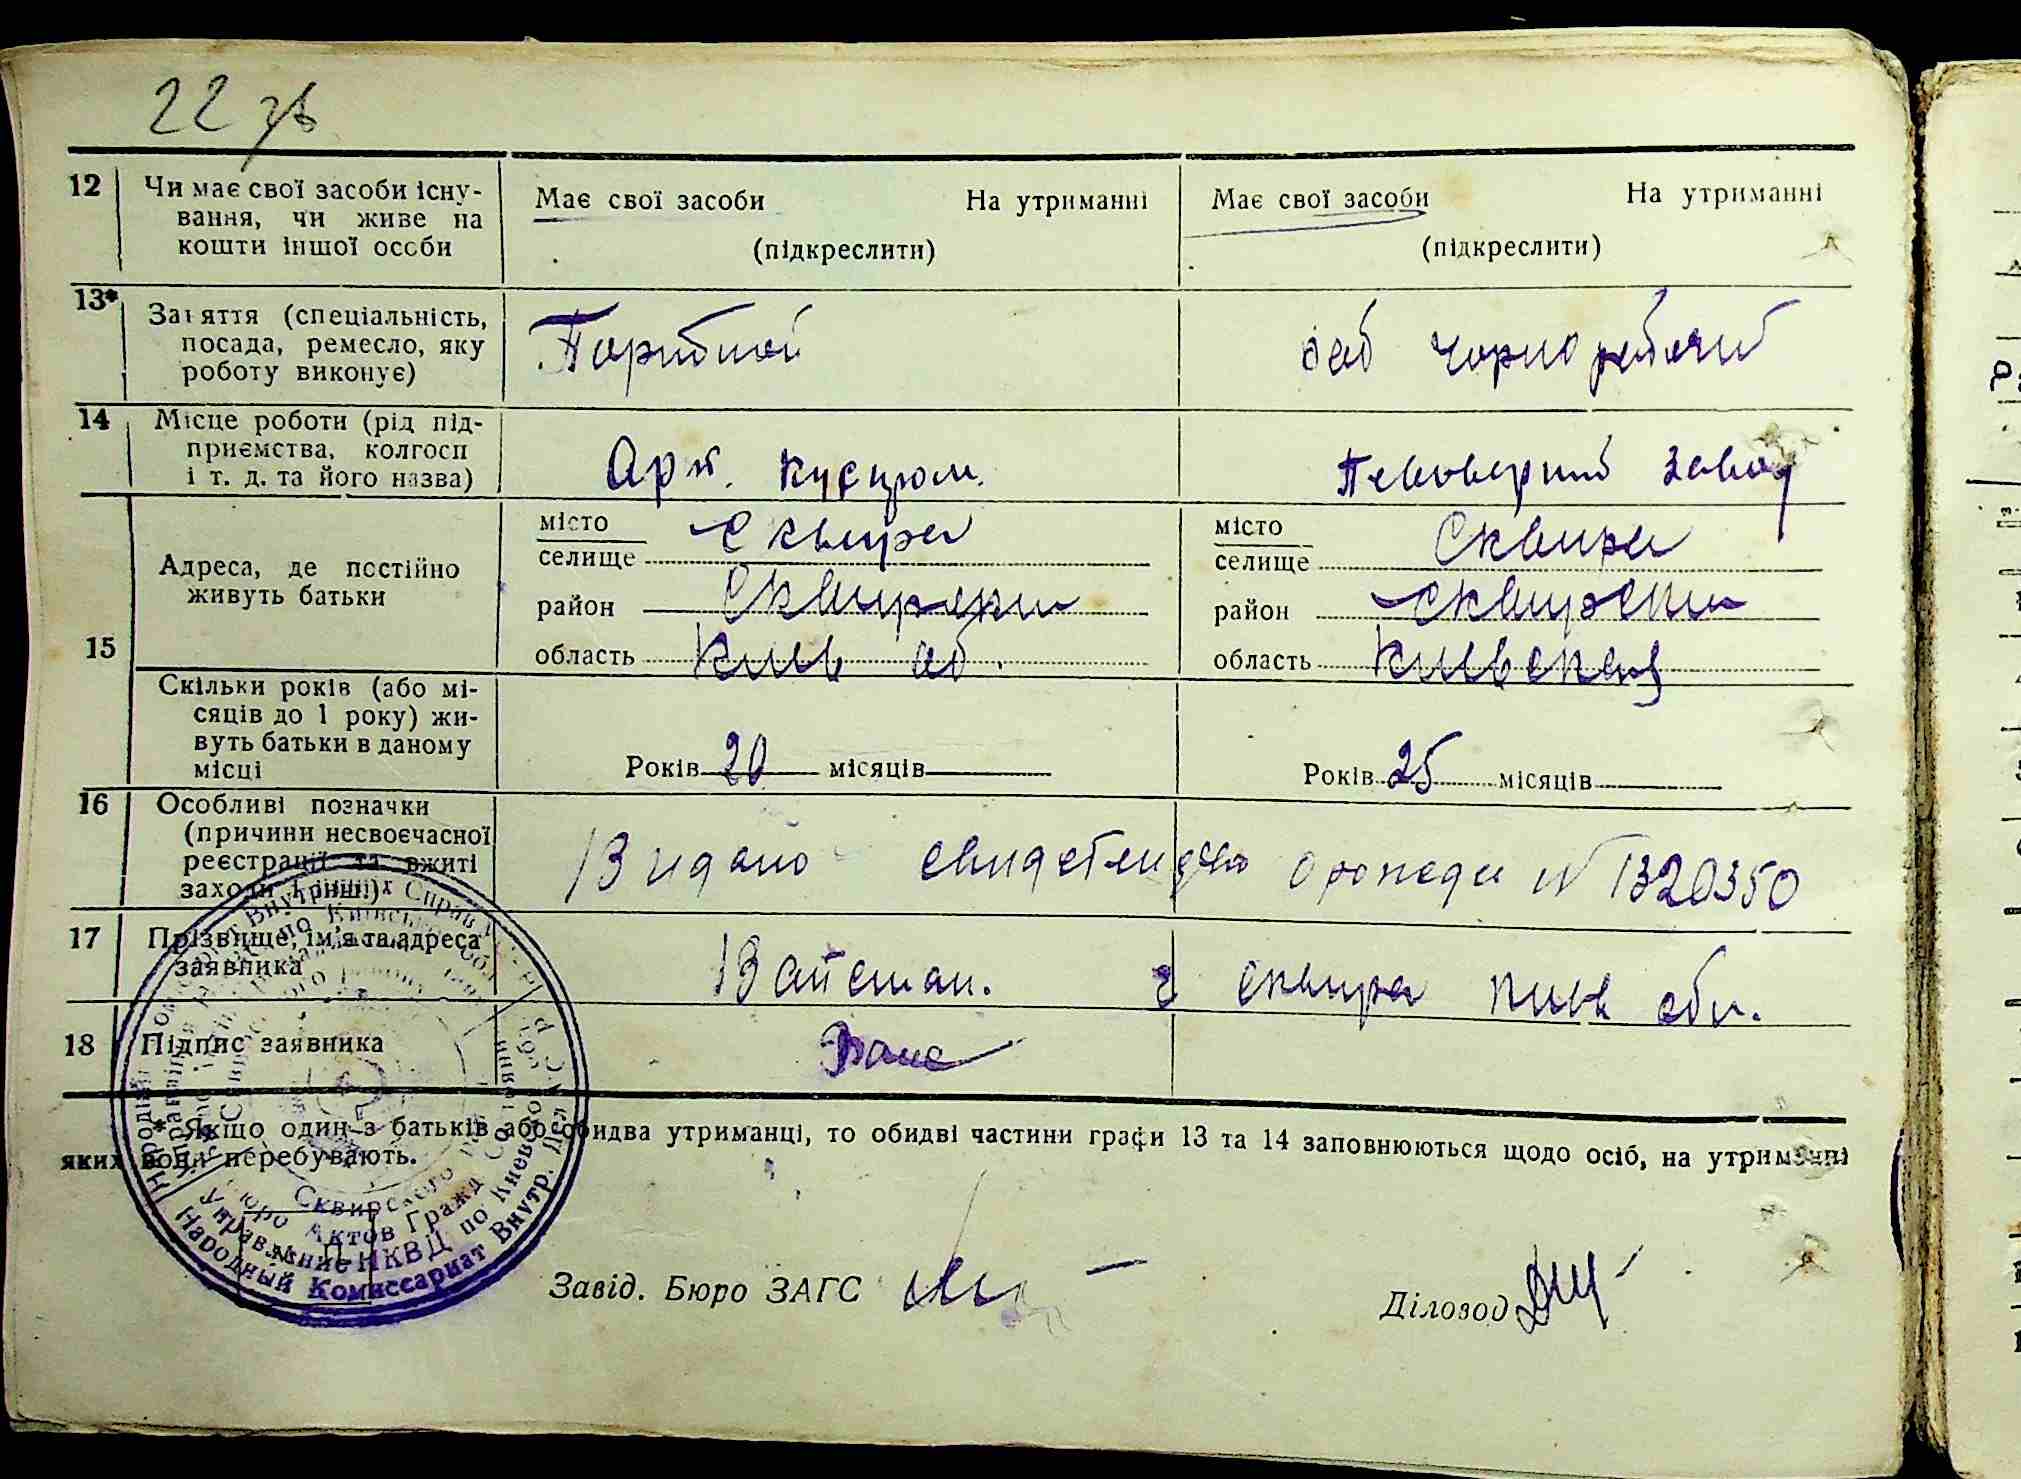 22 зв
12 Чи має свої засоби існу-
вання, чи живе на
кошти іншої особи
Має свої засоби На утриманні
(підкреслити)
Має свої засоби На утриманні
(підкреслити)
13* Заняття (спеціальність,
посада, ремесло, яку
роботу виконує)
чорноробочий
14 Місце роботи (рід під-
приємства, колгосп
і т. д. та його назва)
Арт.
завод
15 Адреса, де постійно
живуть батьки
місто Сквира
селище
район
область Київ об.
місто Сквира
селище
район
область
Скільки років (або мі-
сяців до 1 року) жи-
вуть батьки в даному
місці
Років 20 місяців
Років 25 місяців
16 Особливі позначки
(причини несвоєчасної
реєстрації та вжиті
заходи і інші)
Видано N 1320350
17 Прізвище, ім'я та адреса
заявника
Вайсман. Сквира Київ обл.
18 Підпис заявника
* Якщо один з батьків або обидва утриманці, то обидві частини графи 13 та 14 заповнюються щодо осіб, на утриманні
яких вони перебувають.
Завід. Бюро ЗАГС
Діловод
Сквирского
Бюро Актов Гражд
Управление НКВД по Киевской
Народный Комиссариат Внутр. Дел